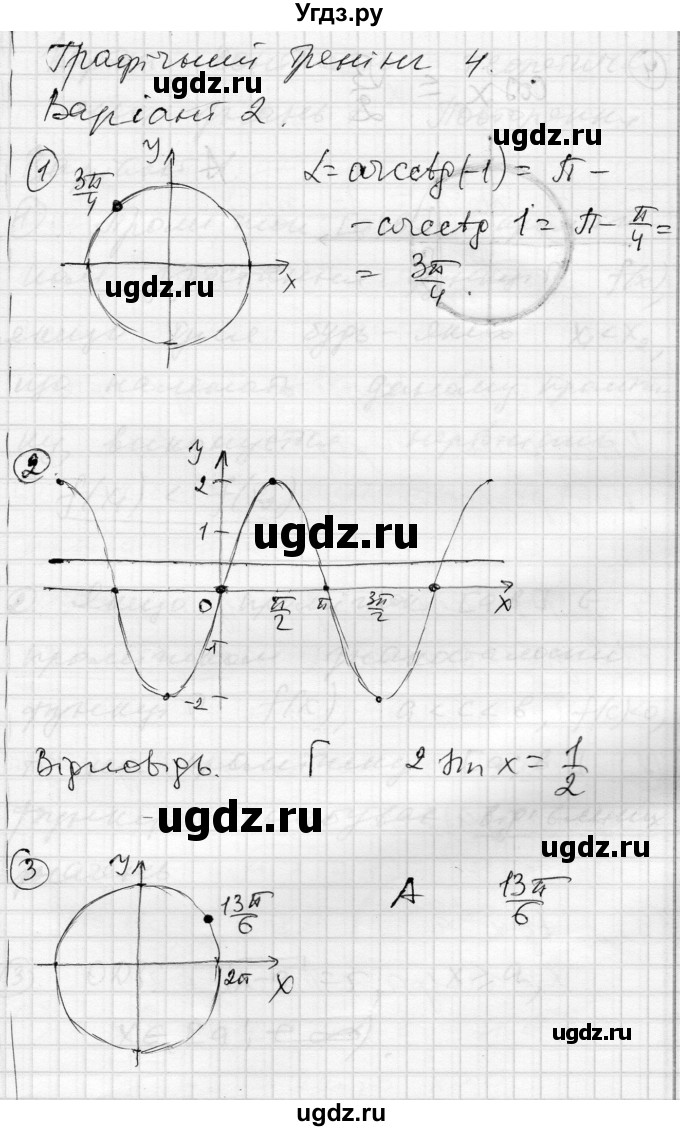 Угдз.ру
Графічний тренінг 4.
Варіант 2.
ugdz.ru
ugdz.ru
1
3π/4
y
x
ugdz.ru
α = arcctg(-1) = π -
- arcctg 1 = π - π/4 =
= 3π/4.
2
y
2
1
ugdz.ru
0
π/2
π
3π/2
x
-1
-2
ugdz.ru
ugdz.ru
Відповідь. Г 2 sin x = 1/2
ugdz.ru
ugdz.ru
3
y
13π/6
2π
x
А 13π/6
ugdz.ru
ugdz.ru